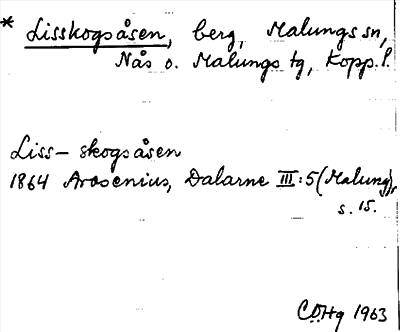 * Lisskogsåsen, berg, Malungs sn,
Nås o. Malungs tg, Kopp. l.
Liss-skogsåsen
1864 Arosenius, Dalarne III:5 (Malung),
s. 15.
CÖHg 1963